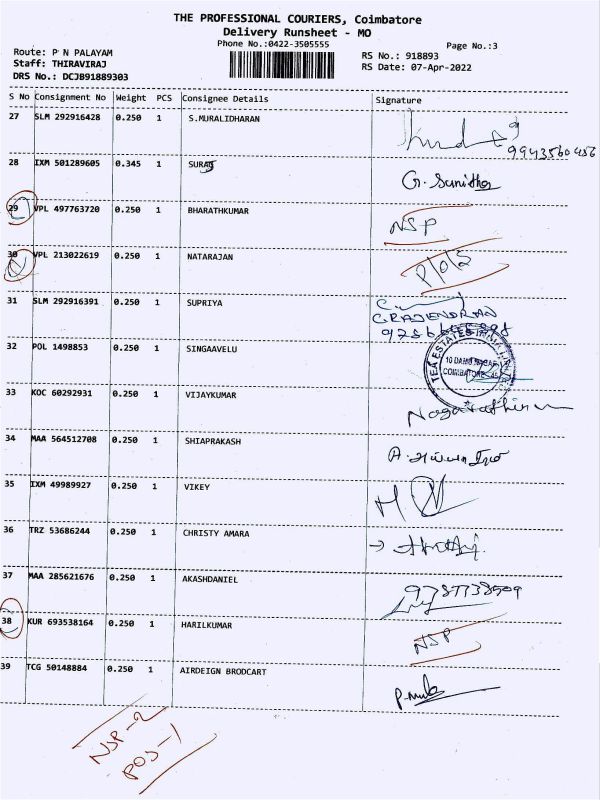 THE PROFESSIONAL COURIERS, Coimbatore
Delivery Runsheet - MO
Phone No.:0422-3505555
Page No.:3
Route: P N PALAYAM
Staff: THIRAVIRAJ
DRS No.: DCJB91889303
RS No.: 918893
RS Date: 07-Apr-2022
S No Consignment No Weight PCS Consignee Details Signature
27 SLM 292916428 0.250 1 S.MURALIDHARAN
9943560456
28 IXM 501289605 0.345 1 SURAJ G. Sunitha
29 VPL 497763720 0.250 1 BHARATHKUMAR NSP
30 VPL 213022619 0.250 1 NATARAJAN P/O/S
31 SLM 292916391 0.250 1 SUPRIYA
G RAJENDRAN
32 POL 1498853 0.250 1 SINGAAVELU
TEA ESTATES
COIMBATORE-45
33 KOC 60292931 0.250 1 VIJAYKUMAR
34 MAA 564512708 0.250 1 SHIAPRAKASH A.
35 IXM 49989927 0.250 1 VIKEY
36 TRZ 53686244 0.250 1 CHRISTY AMARA
37 MAA 285621676 0.250 1 AKASHDANIEL 9787738509
38 KUR 693538164 0.250 1 HARILKUMAR NSP
39 TCG 50148884 0.250 1 AIRDEIGN BRODCART
NSP-2
POS-1